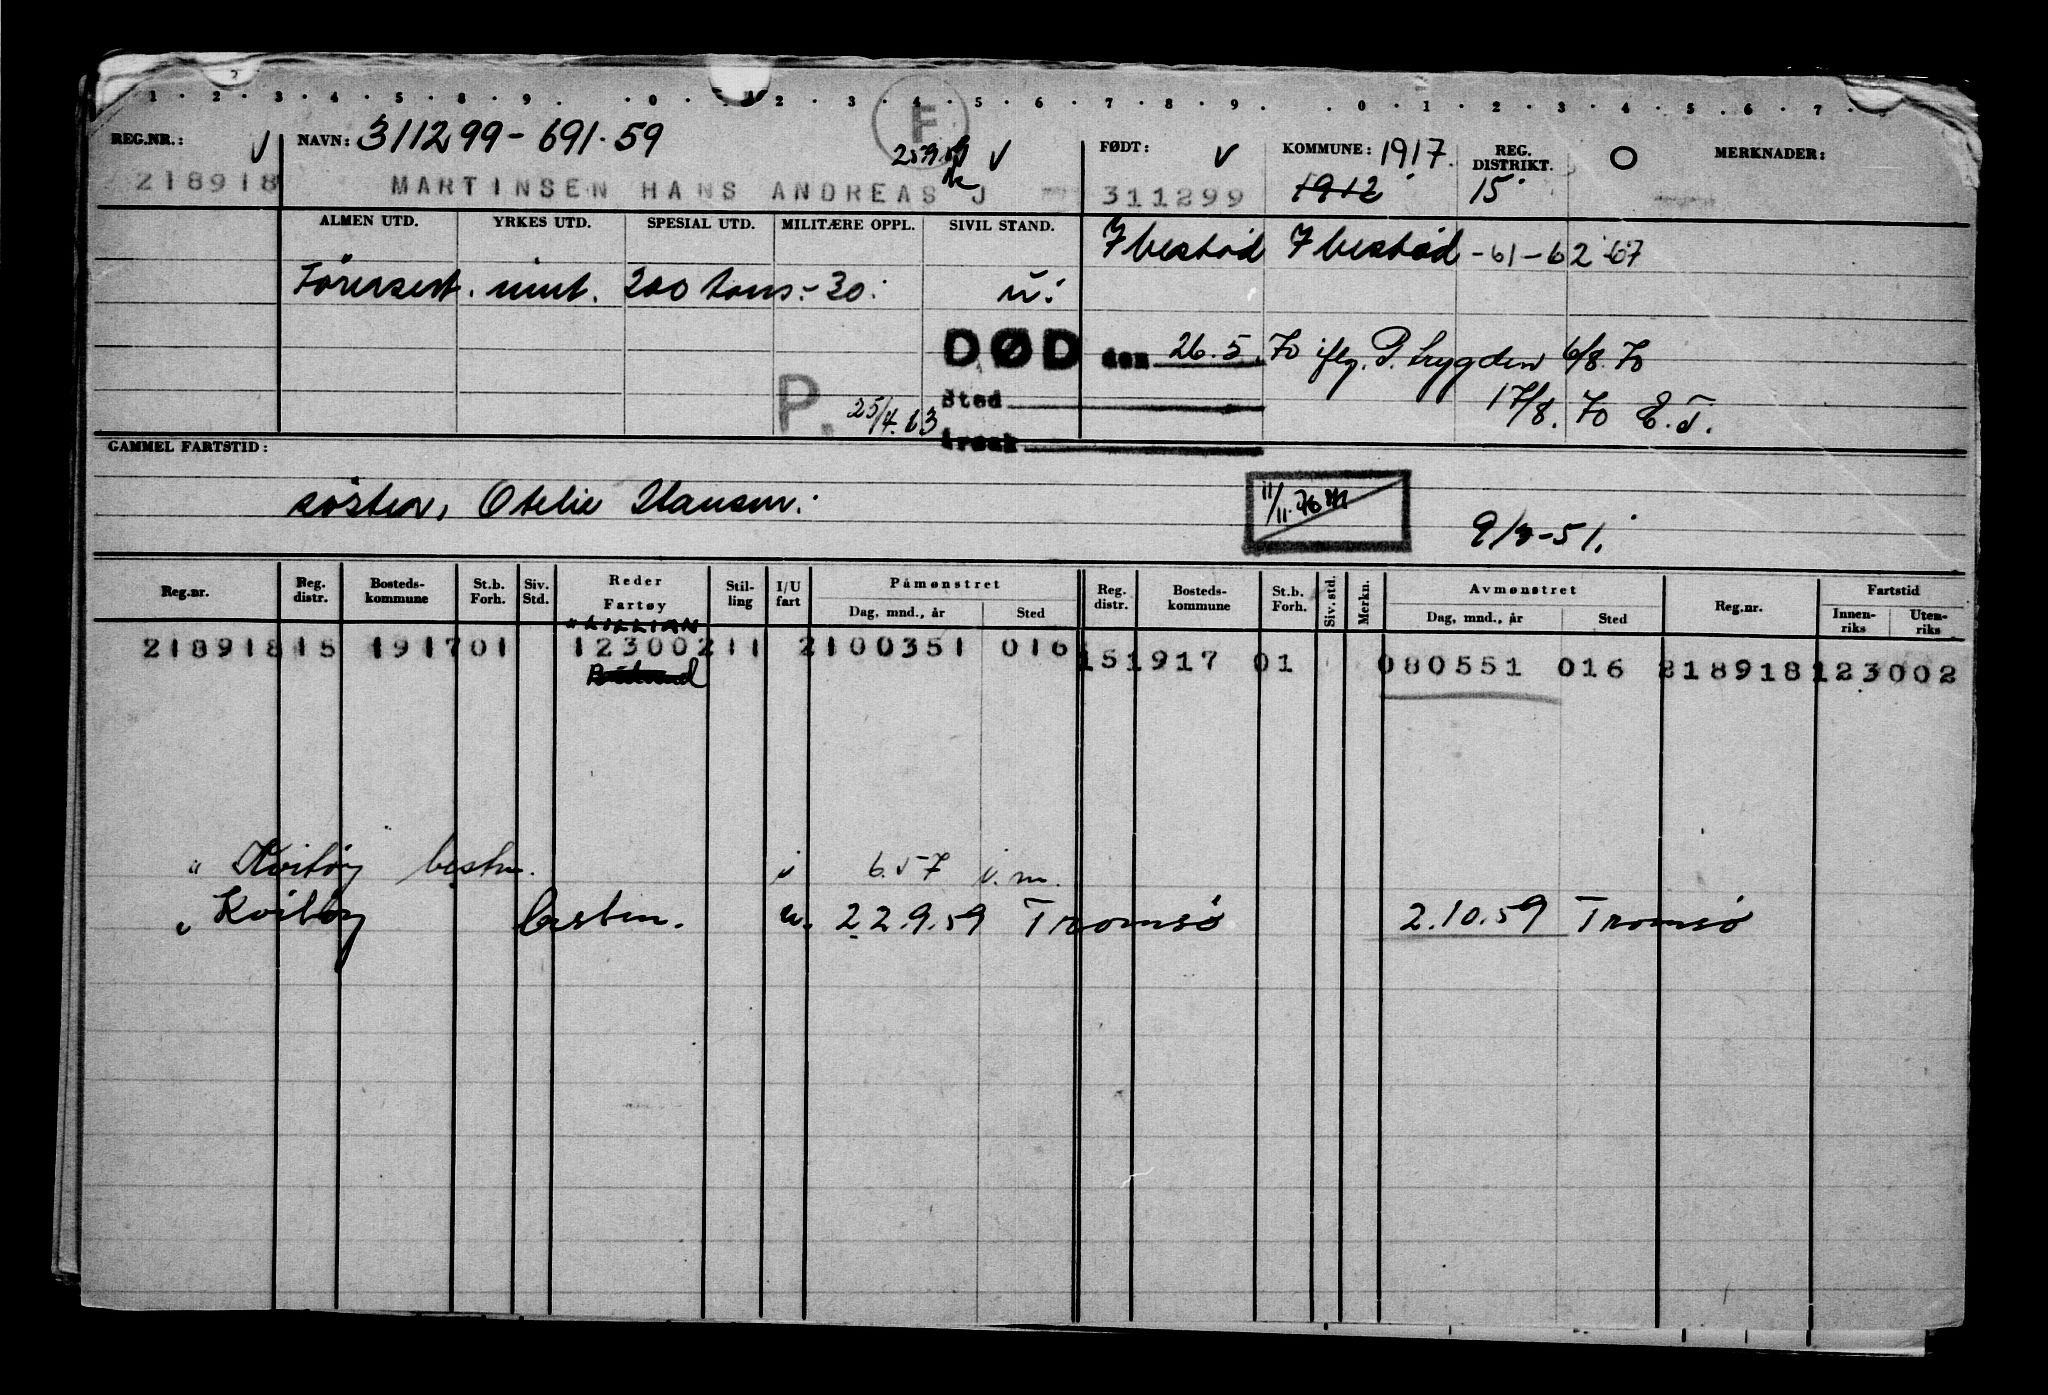 1 . 2 . 3 . 4 . 5 . 8 . 9 . . 0 . 2 . 3 . 4 . 5 . 6 . 7 . 8 . 9 . . 0 . 1 . 2 . 3 . 4 . 5 . 6 . 7 .
F
REG.NR.: V NAVN: 311299-691.59 V FØDT: V KOMMUNE: 1917. REG. DISTRIKT. O MERKNADER:
218918 MARTINSEN HANS ANDREAS J 311299 1912 15
ALMEN UTD. YRKES UTD. SPESIAL UTD. MILITÆRE OPPL. SIVIL STAND. Ibestad Ibestad -61-62-67
Förersert. mint. 200 tons.-30. u.
DØD den 26.5.70 iflg. P. trygden 6/8.70
P. 25/4.63 Sted 17/8.70 E.T.
årsak
GAMMEL FARTSTID:
söster, Otelie Hansen. 11/11.70 9/3-51.
Reg.nr. Reg. distr. Bosteds-kommune St.b. Forh. Siv. Std. Reder Fartøy Stil-ling I/U fart Påmønstret Dag, mnd., år Sted Reg. distr. Bosteds-kommune St.b. Forh. Siv. std. Merkn. Avmønstret Dag, mnd., år Sted Reg.nr. Fartstid Innen-riks Uten-riks
"LILLIAN
218918 15 1917 01 123002 11 2 100351 016 15 1917 01 080551 016 218918 123002
" Kvitöy bestm. i 6.57 i.m.
" Kvitöy bestm. u. 22.9.59 Tromsö 2.10.59 Tromsö